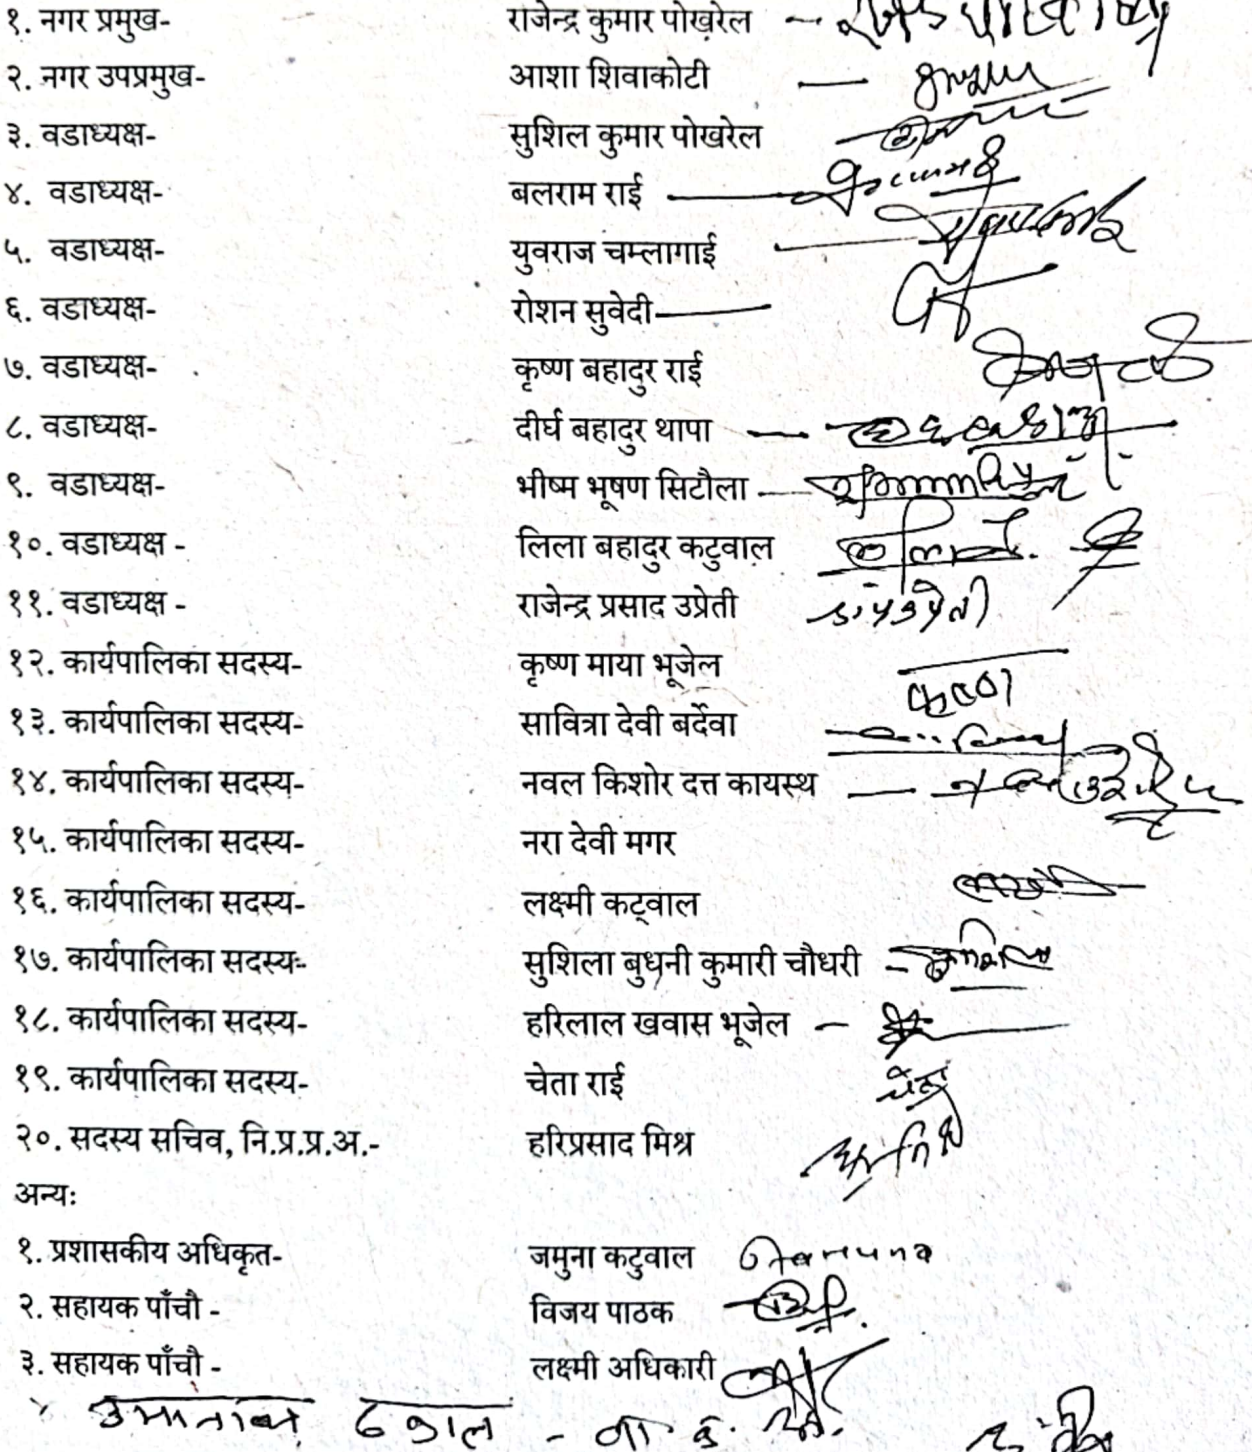 १. नगर प्रमुख- राजेन्द्र कुमार पोखरेल -
२. नगर उपप्रमुख- आशा शिवाकोटी -
३. वडाध्यक्ष- सुशिल कुमार पोखरेल
४. वडाध्यक्ष- बलराम राई
५. वडाध्यक्ष- युवराज चम्लागाई
६. वडाध्यक्ष- रोशन सुवेदी
७. वडाध्यक्ष- कृष्ण बहादुर राई
८. वडाध्यक्ष- दीर्घ बहादुर थापा -
९. वडाध्यक्ष- भीष्म भूषण सिटौला -
१०. वडाध्यक्ष - लिला बहादुर कटुवाल
११. वडाध्यक्ष - राजेन्द्र प्रसाद उप्रेती
१२. कार्यपालिका सदस्य- कृष्ण माया भूजेल कृष्ण
१३. कार्यपालिका सदस्य- सावित्रा देवी बर्देवा
१४. कार्यपालिका सदस्य- नवल किशोर दत्त कायस्थ -
१५. कार्यपालिका सदस्य- नरा देवी मगर
१६. कार्यपालिका सदस्य- लक्ष्मी कट्वाल
१७. कार्यपालिका सदस्यः- सुशिला बुधनी कुमारी चौधरी -
१८. कार्यपालिका सदस्य- हरिलाल खवास भूजेल -
१९. कार्यपालिका सदस्य- चेता राई
२०. सदस्य सचिव, नि.प्र.प्र.अ.- हरिप्रसाद मिश्र
अन्यः
१. प्रशासकीय अधिकृत- जमुना कटुवाल Jamuna
२. सहायक पाँचौ - विजय पाठक
३. सहायक पाँचौ - लक्ष्मी अधिकारी